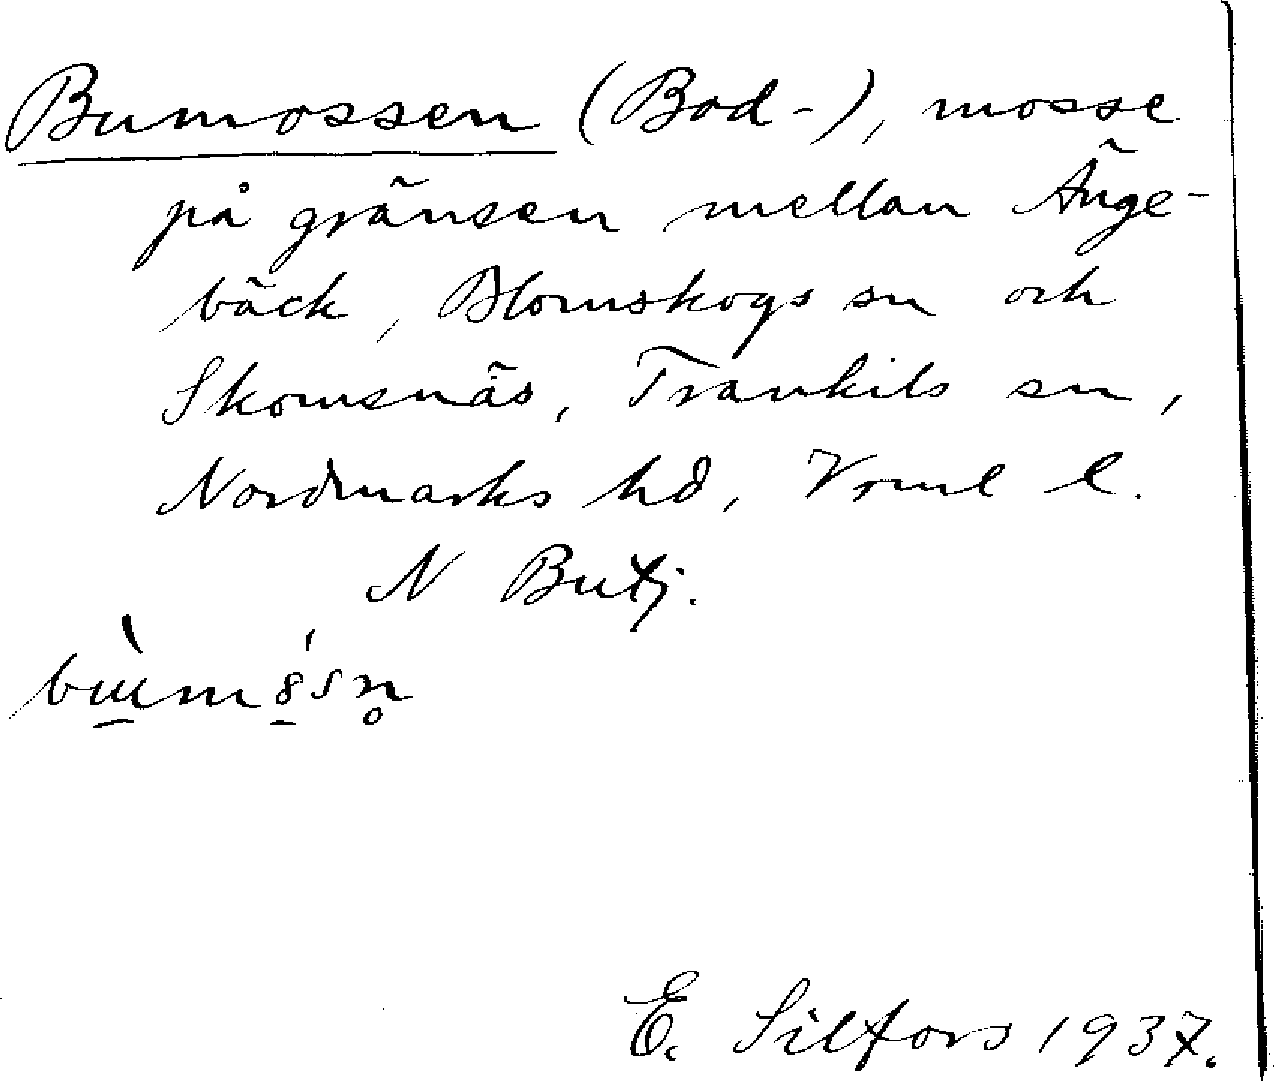 Bumossen (Bod-), mosse
på gränsen mellan Änge-
bäck, Blomskogs sn och
Skomsnäs, Trankils sn,
Nordmarks hd, Vrml l.
N Butj.
E. Silfors 1937.